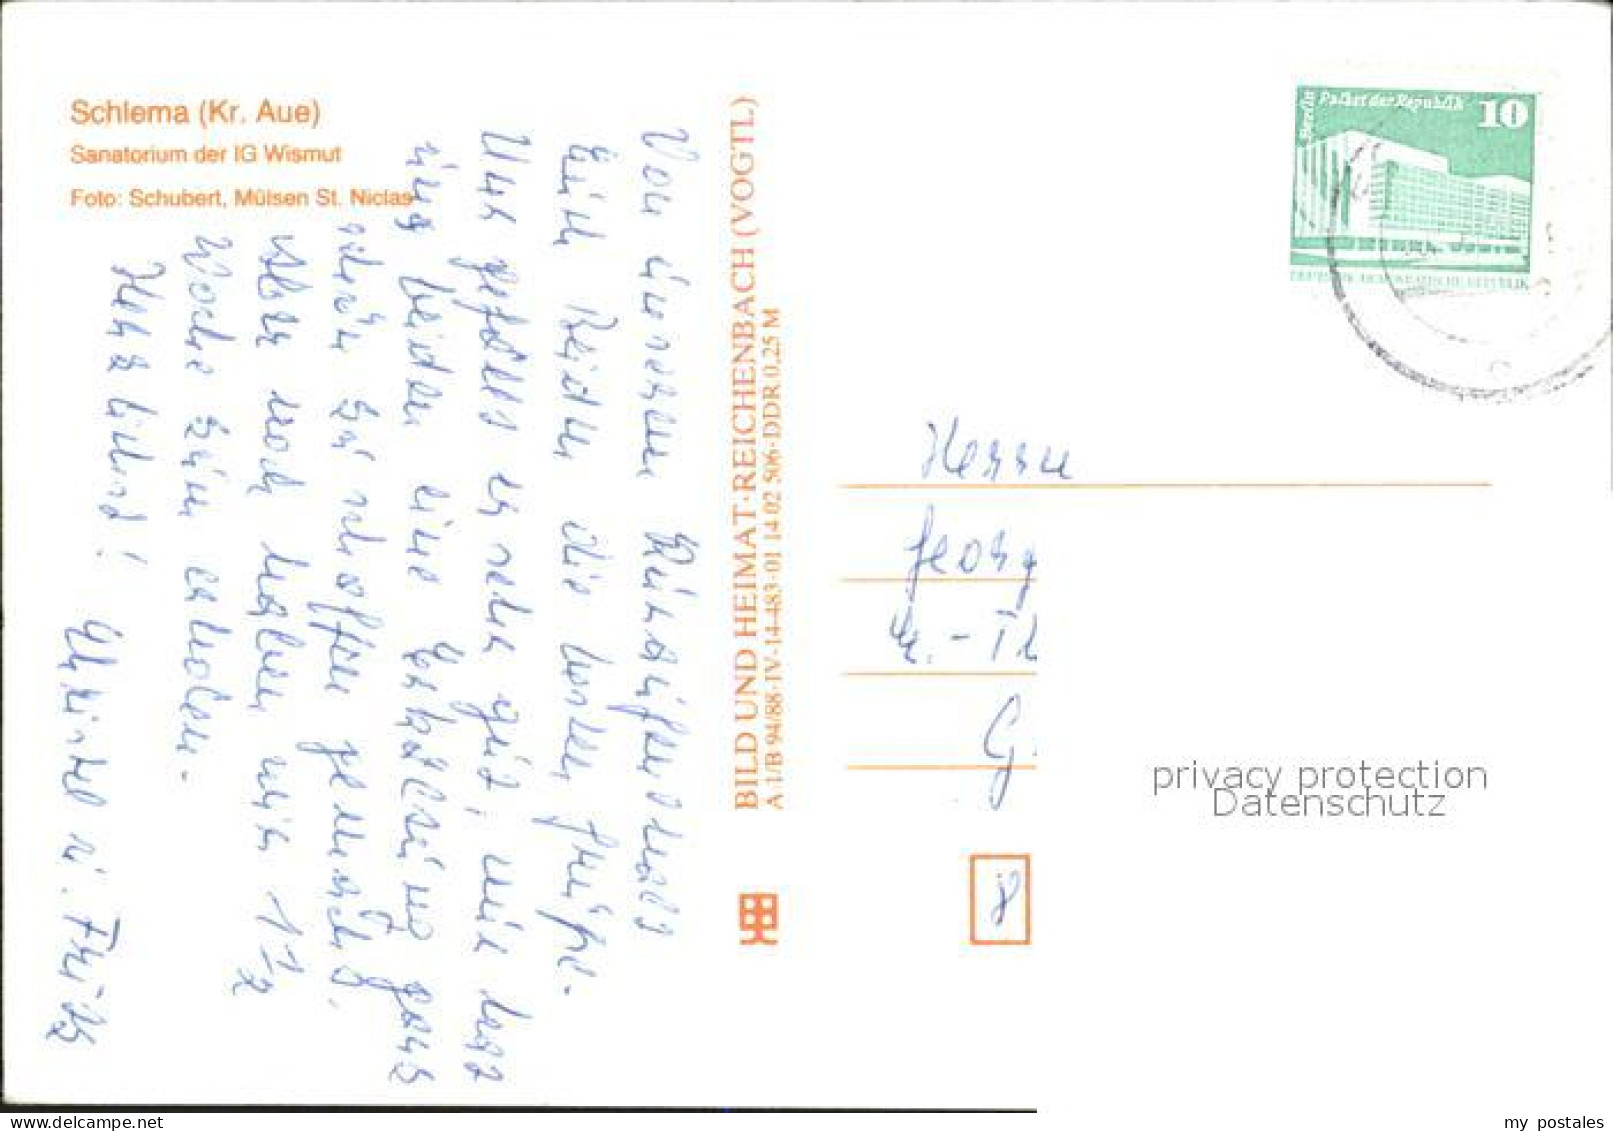 Schlema (Kr. Aue)
Sanatorium der IG Wismut
Foto: Schubert, Mülsen St. Niclas
Von unserem Kuraufenthalt
Euch Beiden die besten Grüße.
Uns gefällt es sehr gut, nur hat
uns beiden eine Erkältung ganz
schön zu schaffen gemacht.
Aber noch haben wir 1 1/2
Woche zum erholen.
Herzlichst! Christel u. Fritz
BILD UND HEIMAT·REICHENBACH (VOGTL)
A 1/B 94/88·IV-14-483·01 14 02 506·DDR 0,25 M
Berlin
Palast der Republik
10
DEUTSCHE DEMOKRATISCHE REPUBLIK
Herrn
Georg
G.
8
privacy protection
Datenschutz
www.delcampe.net
my_postales